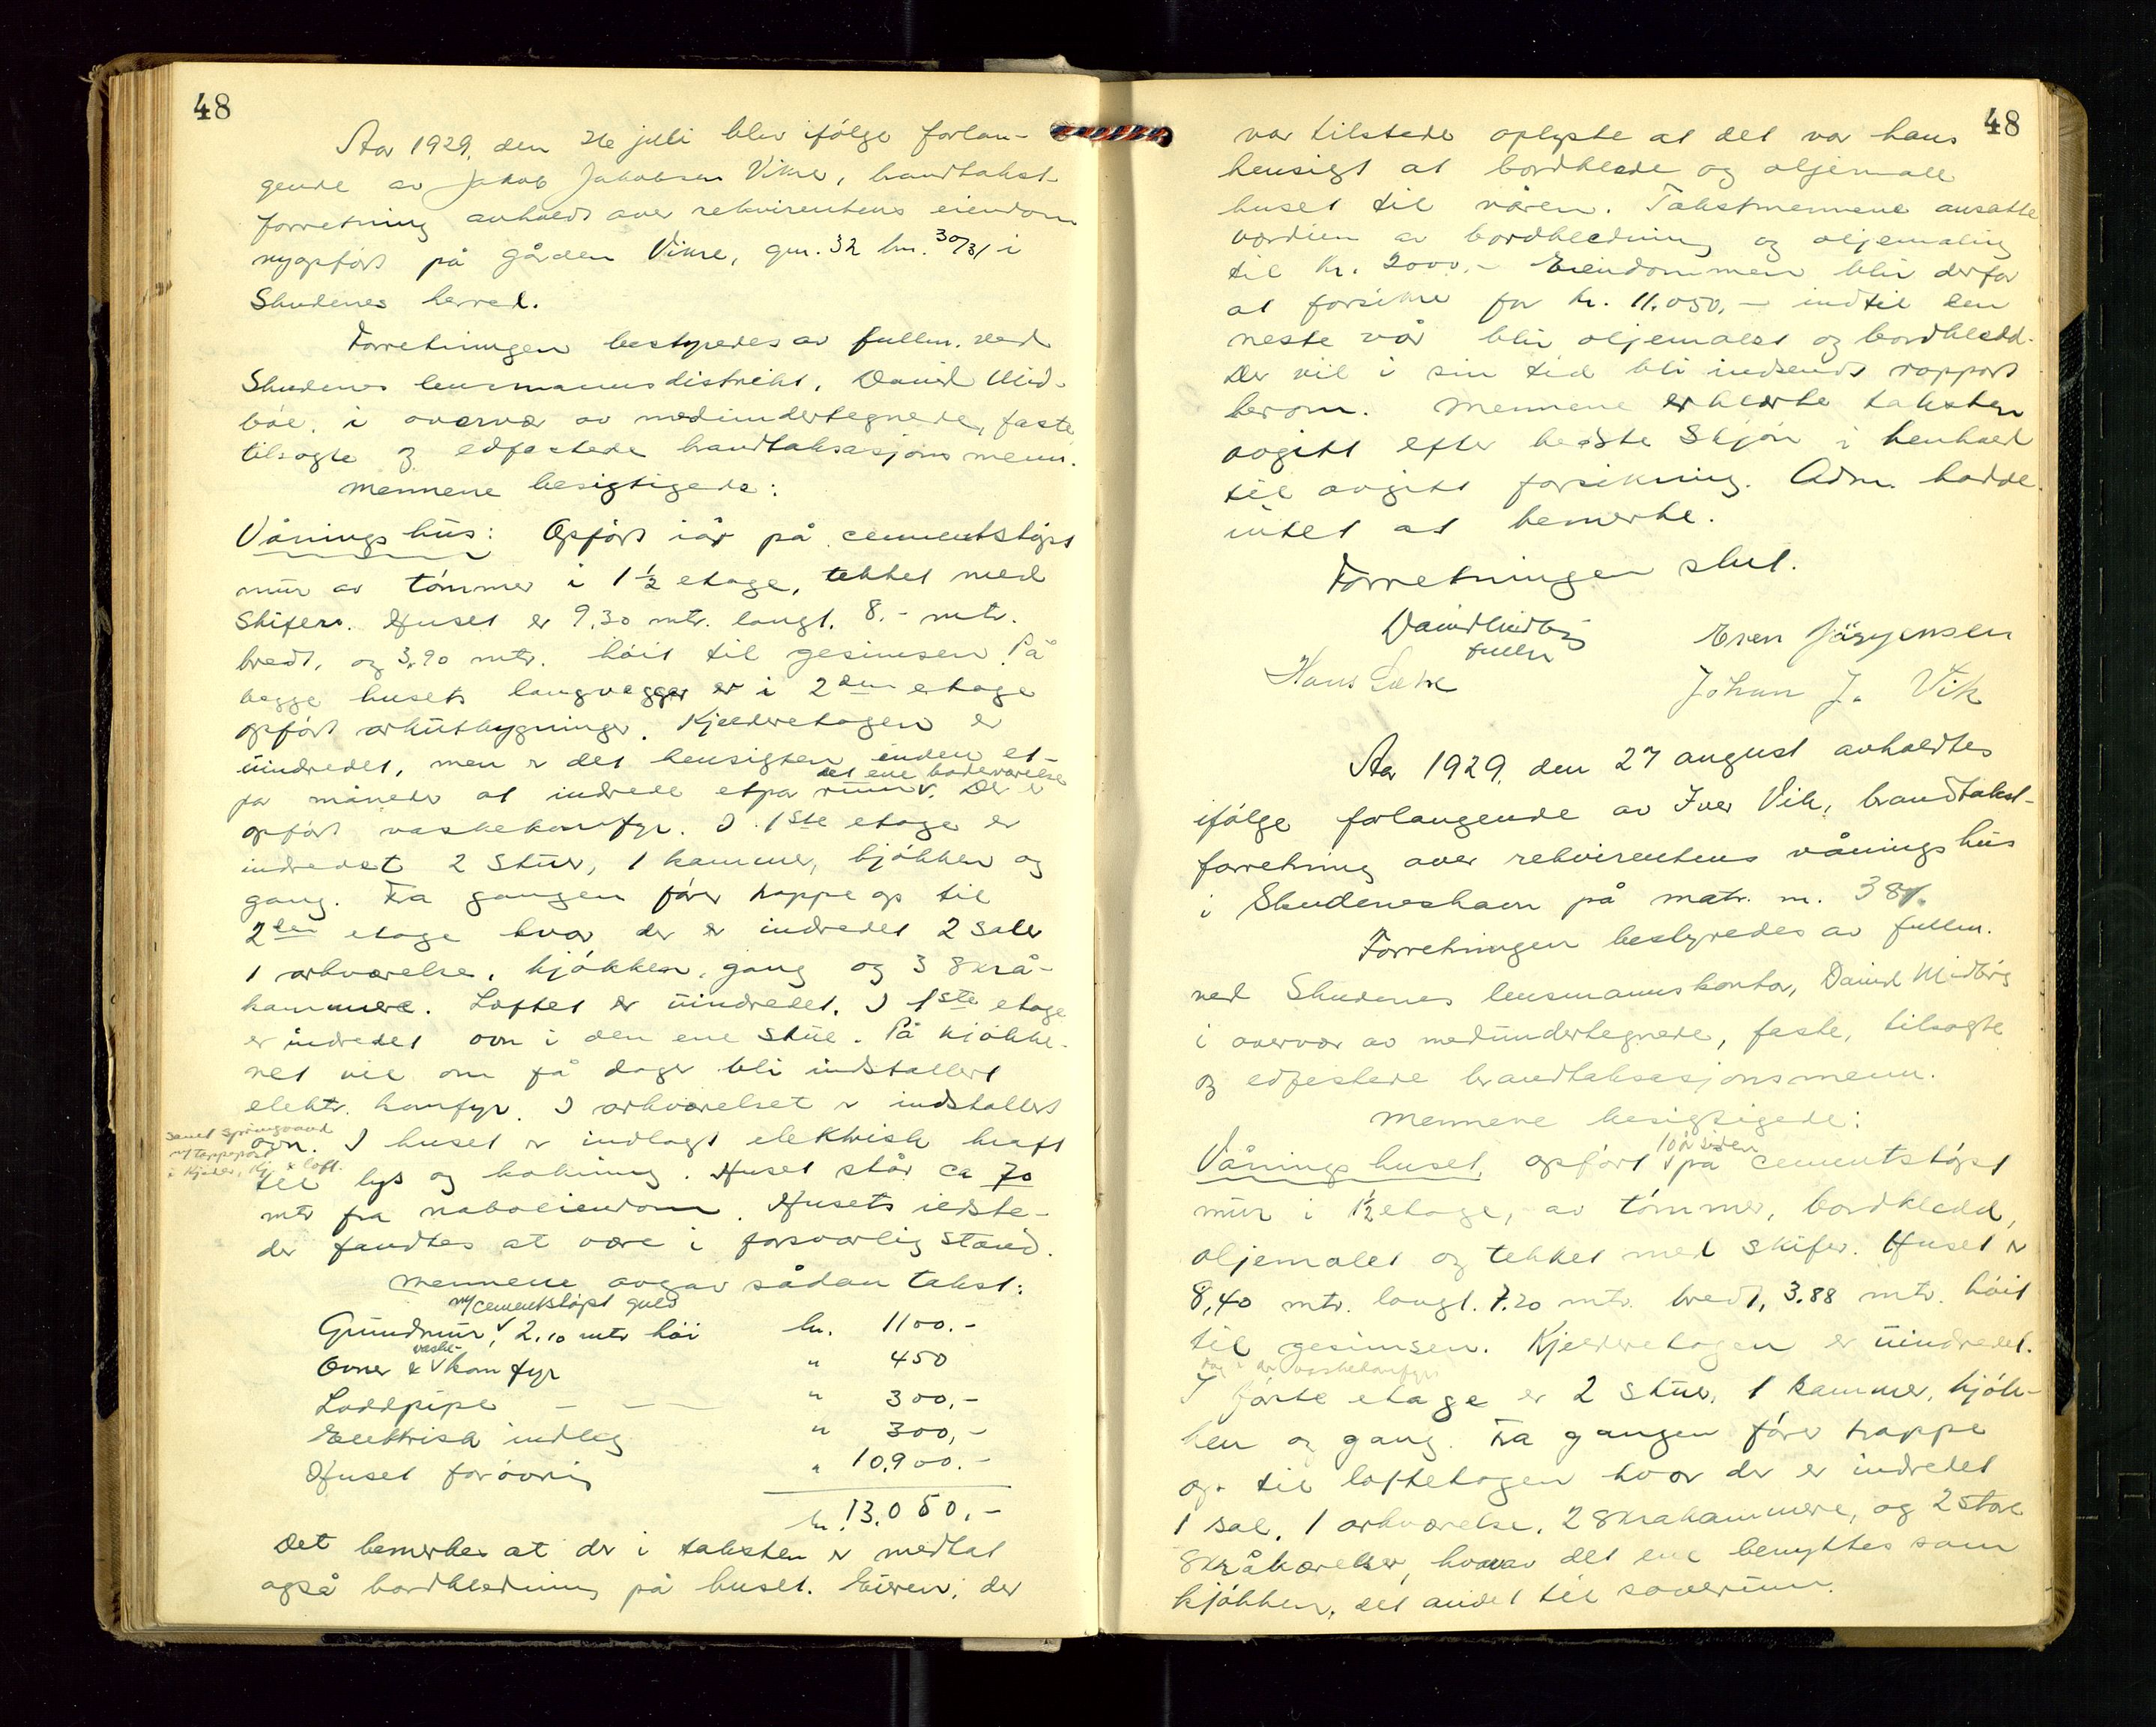 48
Aar 1929, den 26 juli blev ifølge forlan-
gende av Jakob Jakobsen Vikre, brandtakst-
forretning avholdt over rekvirentens eiendom
nyopført på gården Vikre, gnr. 32 bnr. 30/31 i
Skudenes herred.
Forretningen bestyredes av fullm. ved
Skudenes lensmannsdistrikt, David Mid-
bøe, i overvær av medundertegnede, faste
tilsagte og edfæstede brandtaksasjonsmenn.
Mennene besigtigede:
Våningshus: Opført iår på cementstøpt
mur av tømmer i 1 ½ etage, tekket med
Skifer. Huset er 9,30 mtr. langt, 8,- mtr.
bredt, og 3,90 mtr. høit til gesimsen. På
begge husets langvegger er i 2den etage
opført arkutbygninger. Kjelderetagen er
uindredet, men er det hensigten inden et-
par måneder at indrede etpar rum, det ene badeværelse. Der er
opført vaskekomfyr. I 1ste etage er
indredet 2 Stuer, 1 kammer, kjøkken og
gang. Fra gangen fører trappe op til
2den etage hvor der er indredet 2 saler
1 arkværelse, kjøkken, gang og 3 skrå-
kammere. Loftet er uindredet. I 1ste etage
er indredet ovn i den ene Stue. På kjøkke-
net vil om få dager bli indstallert
elektr. komfyr. I arkværelset er indstallert
ovn. I huset er indlagt elektrisk kraft
samt springvand
m/ tappepost
i Kjelder, Kj. & loft.
til lys og kokning. Huset står ca 70
mtr fra naboeiendom. Husets ildste-
der fandtes at være i forsvarlig stand.
Mennene avgav sådan takst:
Grundmur, m/ cementstøpt gulv 2,10 mtr høi kr. 1100.-
Ovner & vaske-komfyr " 450
Loddpipe - — — " 300,-
Elektrisk indleg " 300,-
Huset forøvrig " 10.900.-
kr. 13.050,-
Det bemerkes at der i taksten er medtat
også bordkledning på huset. Eieren, der
48
var tilstede oplyste at det var hans
hensigt at bordklæde og oljemale
huset til våren. Takstmennene ansatte
værdien av bordkledning og oljemaling
til kr. 2000.- Eiendommen blir derfor
at forsikre for kr. 11.050,- indtil den
neste vår blir oljemalet og bordkledd.
Der vil i sin tid bli indsendt rapport
herom. Mennene erklærte taksten
avgitt efter bedste Skjøn i henhold
til avgitt forsikring. Adm. hadde
intet at bemerke.
Forretningen slut.
David Midbøe
fullm
Sven Jørgensen
Hans
Johan J. Vik
Aar 1929, den 27 august avholdtes
ifølge forlangende av Iver Vik, brandtakst-
forretning over rekvirentens våningshus
i Skudeneshavn på matr. nr. 38
Forretningen bestyredes av fullm.
ved Skudenes lensmannskontor, David Midbøe
i overvær av medundertegnede, faste, tilsagte
og edfestede brandtaksasjonsmenn.
Mennene besigtigede:
Våningshuset, opført 10 år siden på cementstøpt
mur i 1½ etage, av tømmer, bordkledd,
oljemalet og tekket med skifer. Huset er
8,40 mtr. langt. 7.20 mtr. bredt, 3.88 mtr. høit
til gesimsen. Kjelderetagen er uindredet.
dog er der vaskekomfyr
I første etage er 2 Stuer, 1 kammer, kjøk-
ken og gang. Fra gangen fører trappe
op til loftetagen hvor der er indredet
1 sal, 1 arkværelse, 2 skrakammere, og 2 store
skråværelser, hvorav det ene benyttes som
kjøkken, det andet til soverum.